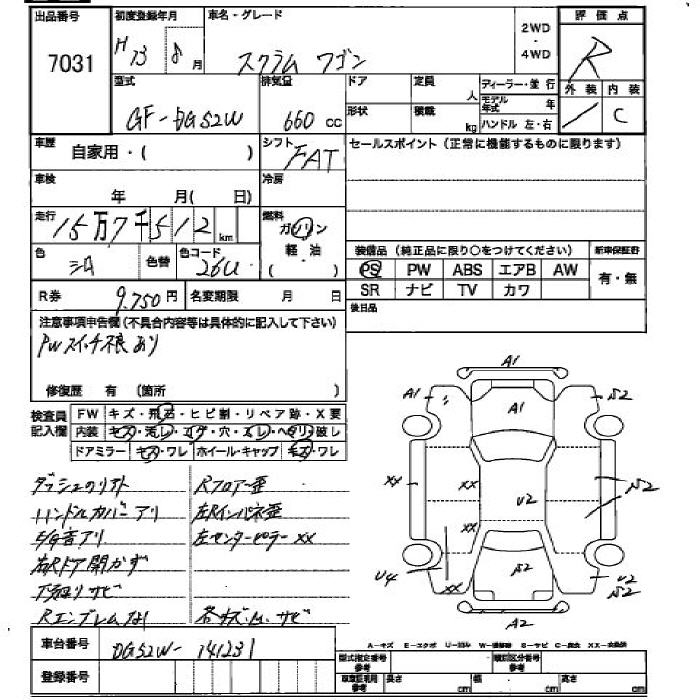 出品番号
7031
初度登録年月
H 13 8月
車名・グレード
スクラム ワゴン
2WD
・
4WD
評価点
R
外装 内装
/ C
型式
GF-DG52W
排気量
660 cc
ドア
形状
定員 人
積載 kg
ディーラー・並行
モデル年式 年
ハンドル 左・右
車歴
自家用・( )
シフト
FAT
セールスポイント (正常に機能するものに限ります)
車検
年 月( 日)
冷房
走行
15万7千512 km
燃料
ガソリン
軽・油
( )
色
シロ
色替
色コード
26U
装備品 (純正品に限り○をつけてください)
新車保証書
PS PW ABS エアB AW
有・無
SR ナビ TV カワ
R券 9.750円
名変期限 月 日
後日品
注意事項申告欄(不具合内容等は具体的に記入して下さい)
PWスイッチ不良あり
修復歴 有 (箇所 )
検査員
記入欄
FW キズ・飛石・ヒビ割・リペア跡・X要
内装 キズ・汚レ・コゲ・穴・スレ・ヘタリ・破レ
ドアミラー キズ・ワレ ホイール・キャップ キズ・ワレ
ハンドルカバーアリ
E/G音アリ
右Rドア開かず
下廻りサビ
Rエンブレムなし
Rフロアー歪
左Rインパネ歪
左センターピラーXX
A1
A1
S2
A1
XX
XX
U2
S2
XX
U4
XX
S2
U2
S2
A2
車台番号
DG52W-141231
登録番号
A-キズ E-エクボ U-凹み W-補修跡 S-サビ C-腐食 XX-交換済
型式指定番号
参考
類別区分番号
参考
車庫証明用
参考
長さ cm
幅 cm
高さ cm